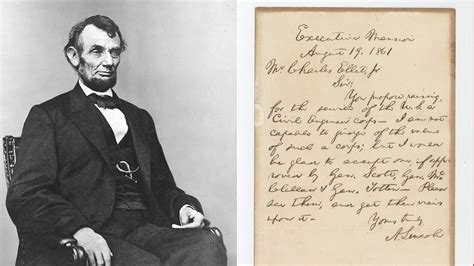 Executive Mansion
August 19, 1861
Mr Charles Ellet, Jr
Sir,
You propose raising,
for the service of the U.S. a
Civil Engineer corps— I am not
capable to judge of the value
of such a corps; but I would
be glad to accept one, if app-
roved by Gen. Scott, Gen. Mc-
Clellan & Gen. Totten— Please
see them, and get their views
upon it—
Yours truly
A. Lincoln